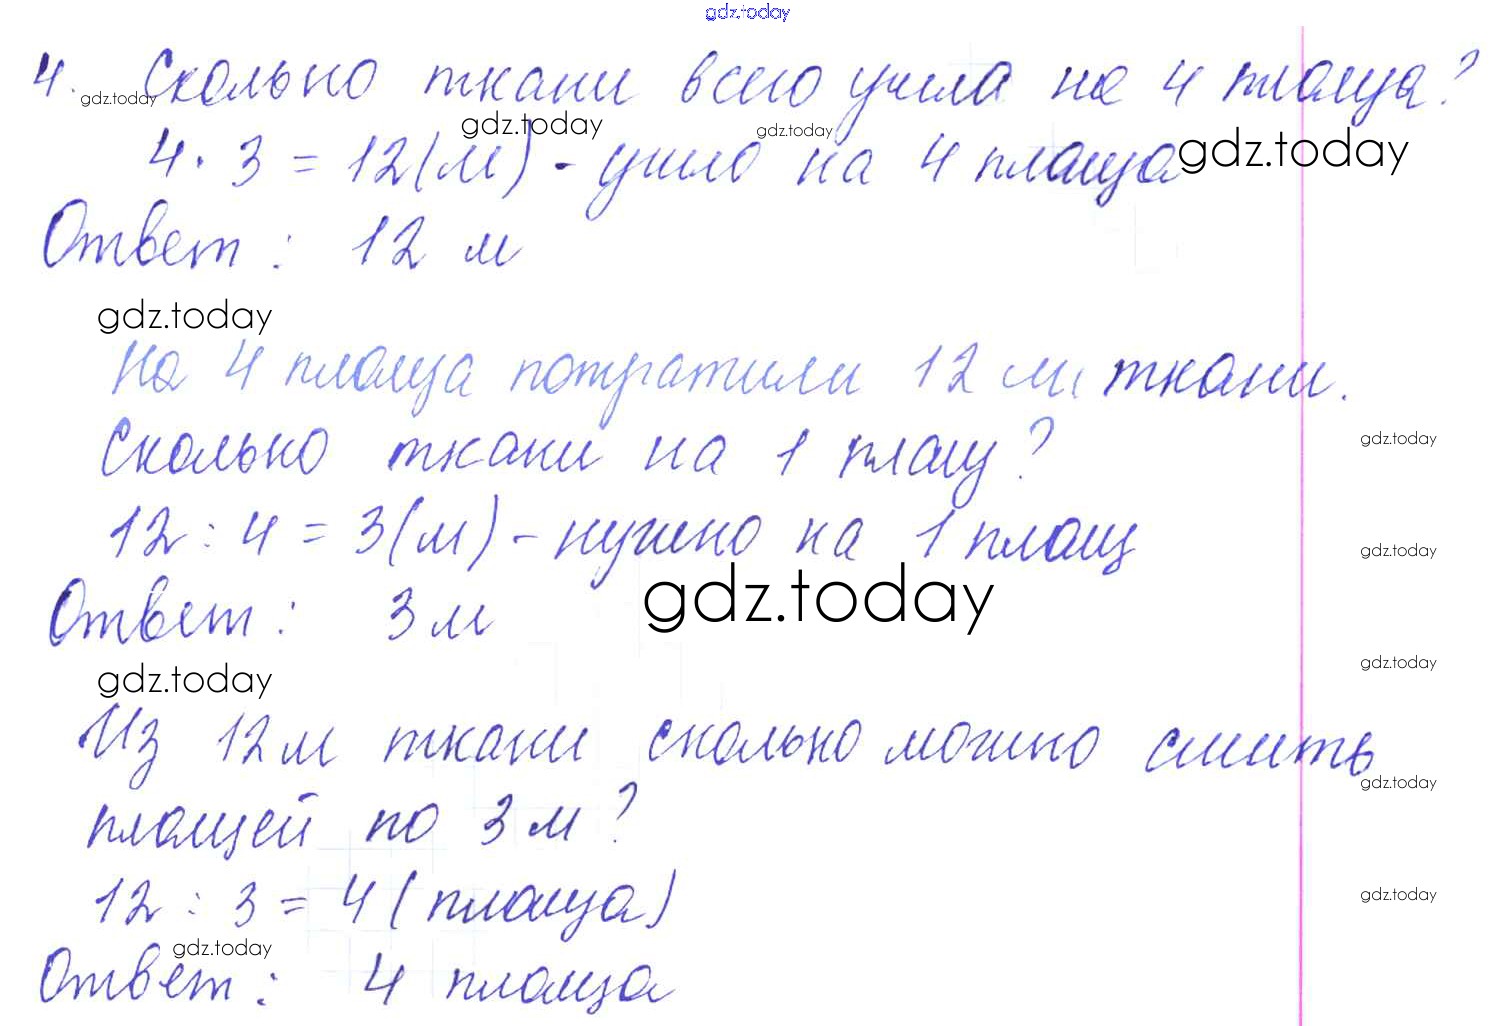 gdz.today
4. Сколько ткани всего ушла на 4 плаща?
gdz.today gdz.today gdz.today gdz.today
4 · 3 = 12 (м) - ушло на 4 плаща
Ответ: 12 м
gdz.today
На 4 плаща потратили 12 м ткани.
gdz.today
Сколько ткани на 1 плащ?
12 : 4 = 3 (м) - нужно на 1 плащ
gdz.today
gdz.today
Ответ: 3 м
gdz.today
gdz.today
Из 12 м ткани сколько можно сшить
gdz.today
плащей по 3 м?
12 : 3 = 4 (плаща)
gdz.today
gdz.today
Ответ: 4 плаща